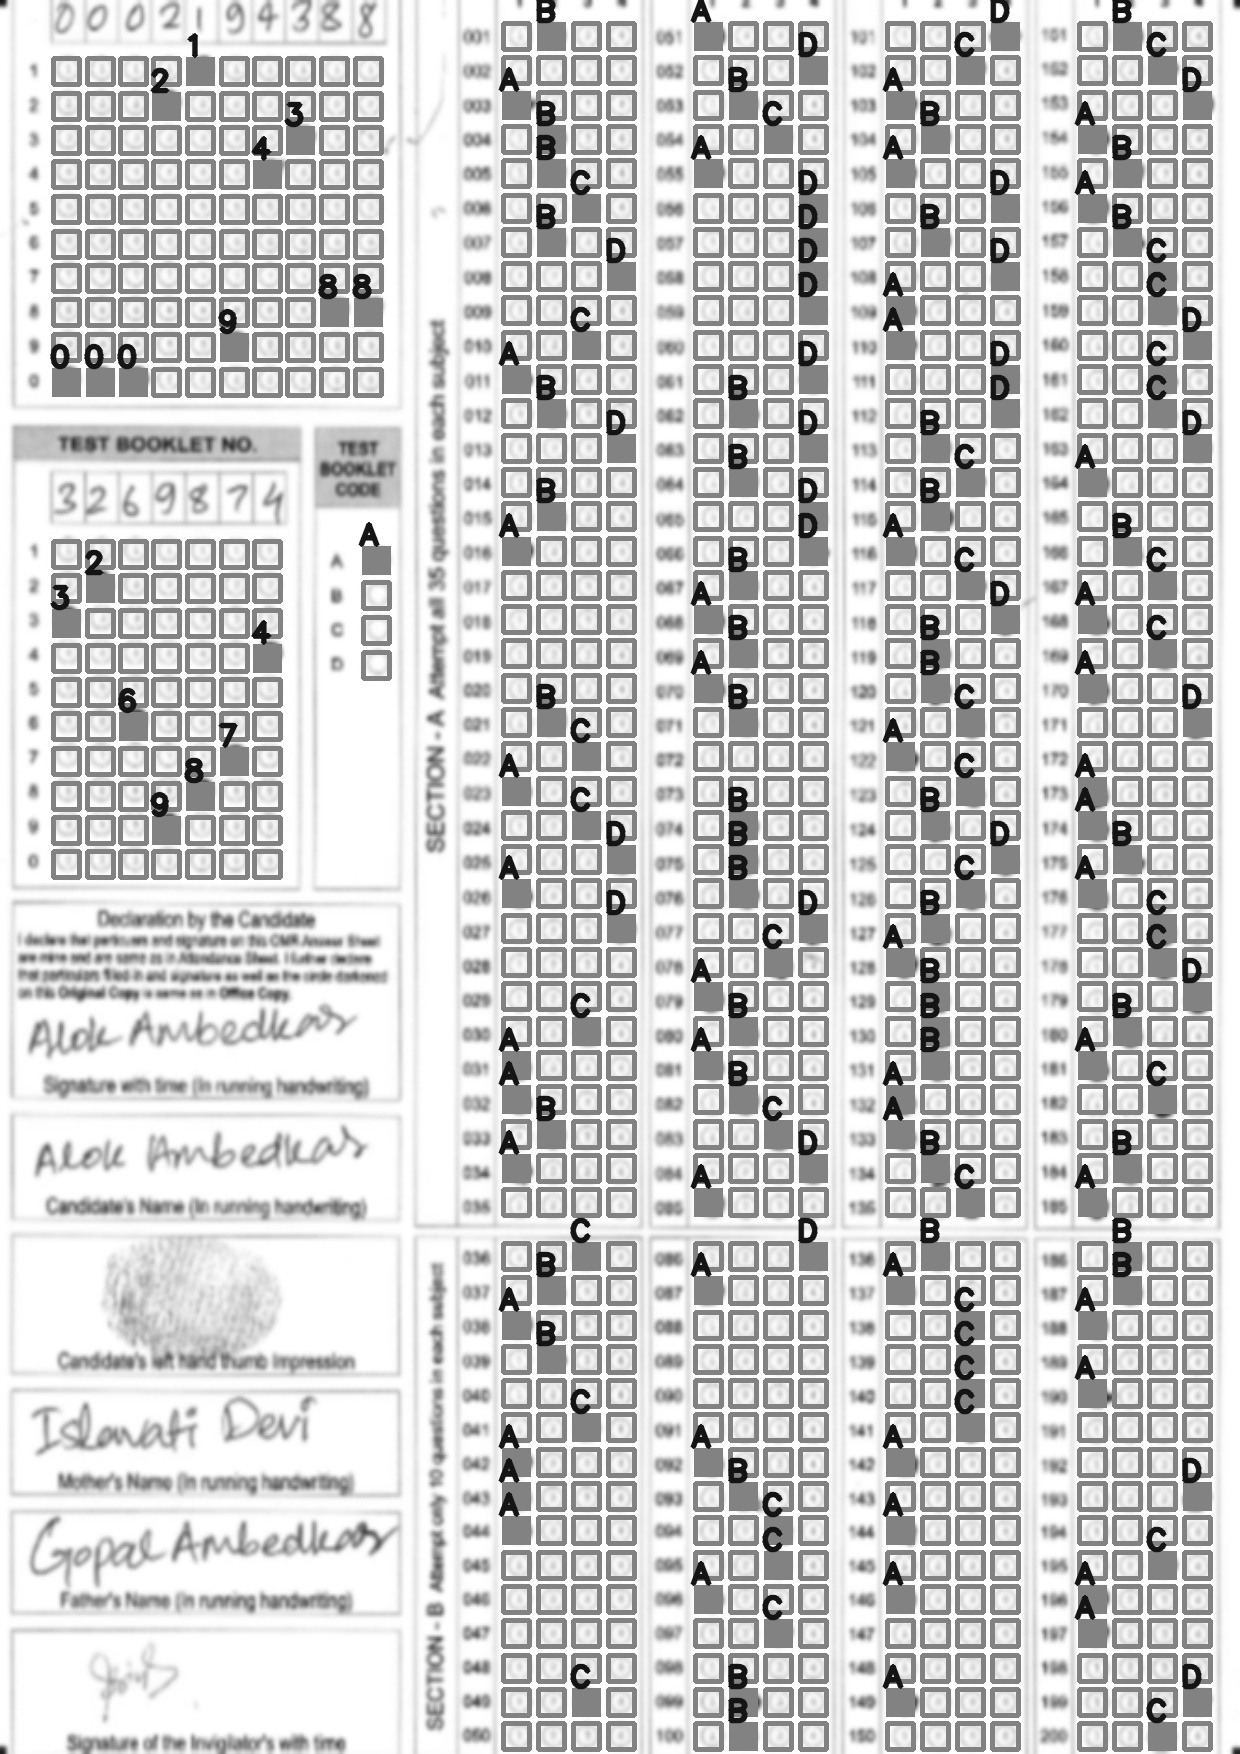 0 0 0 2 1 9 4 3 8 8
1
1
2
2
3
3
4
4
5
6
7
8 8
8
9
9
0 0 0
0
TEST BOOKLET NO.
3 2 6 9 8 7 4
1
2
2
3
3
4
4
5
6
6
7
7
8
8
9
9
0
TEST
BOOKLET
CODE
A
A
B
C
D
Declaration by the Candidate
I declare that particulars and signature on this OMR Answer Sheet
are mine and are same as in Attendance Sheet. I further declare
that particulars filled-in and signature as well as the circle darkened
on this Original Copy is same as in Office Copy.
Alok Ambedkar
Signature with time (In running handwriting)
Alok Ambedkar
Candidate's Name (In running handwriting)
Candidate's left hand thumb Impression
Islawati Devi
Mother's Name (In running handwriting)
Gopal Ambedkar
Father's Name (In running handwriting)
Signature of the Invigilator's with time
SECTION - A Attempt all 35 questions in each subject
SECTION - B Attempt only 10 questions in each subject
001 B
002 D
003 A
004 B
005 B
006 C
007 B
008 D
009
010 C
011 A
012 B
013 D
014
015 B
016 A
017
018
019
020
021 B
022 C
023 A
024 C
025 D
026 A
027 D
028
029
030 C
031 A
032 A
033 B
034 A
035
036 C
037 B
038 A
039 B
040
041 C
042 A
043 A
044 A
045
046
047
048
049 C
050
051 A
052 D
053 B
054 C
055 A
056 D
057 D
058 D
059 D
060
061 D
062 B
063 D
064 B
065 D
066 D
067 B
068 A
069 B
070 A
071 B
072
073
074 B
075 B
076 B
077 D
078 C
079 A
080 B
081 A
082 B
083 C
084 D
085 A
086 D
087 A
088
089
090
091
092 A
093 B
094 C
095 C
096 A
097 C
098
099 B
100 B
101 D
102 C
103 A
104 B
105 A
106 D
107 B
108 D
109 A
110 A
111 D
112 D
113 B
114 C
115 B
116 A
117 C
118 D
119 B
120 B
121 C
122 A
123 C
124 B
125 D
126 C
127 B
128 A
129 B
130 B
131 B
132 A
133 A
134 B
135 C
136 B
137 A
138 C
139 C
140 C
141 C
142 A
143
144 A
145
146 A
147
148
149 A
150
151 B
152 C
153 D
154 A
155 B
156 A
157 B
158 C
159 C
160 D
161 C
162 C
163 D
164 A
165
166 B
167 C
168 A
169 C
170 A
171 D
172
173 A
174 A
175 B
176 A
177 C
178 C
179 D
180 B
181 A
182 C
183
184 B
185 A
186 B
187 B
188 A
189
190 A
191
192
193 D
194
195 C
196 A
197 A
198
199 D
200 C